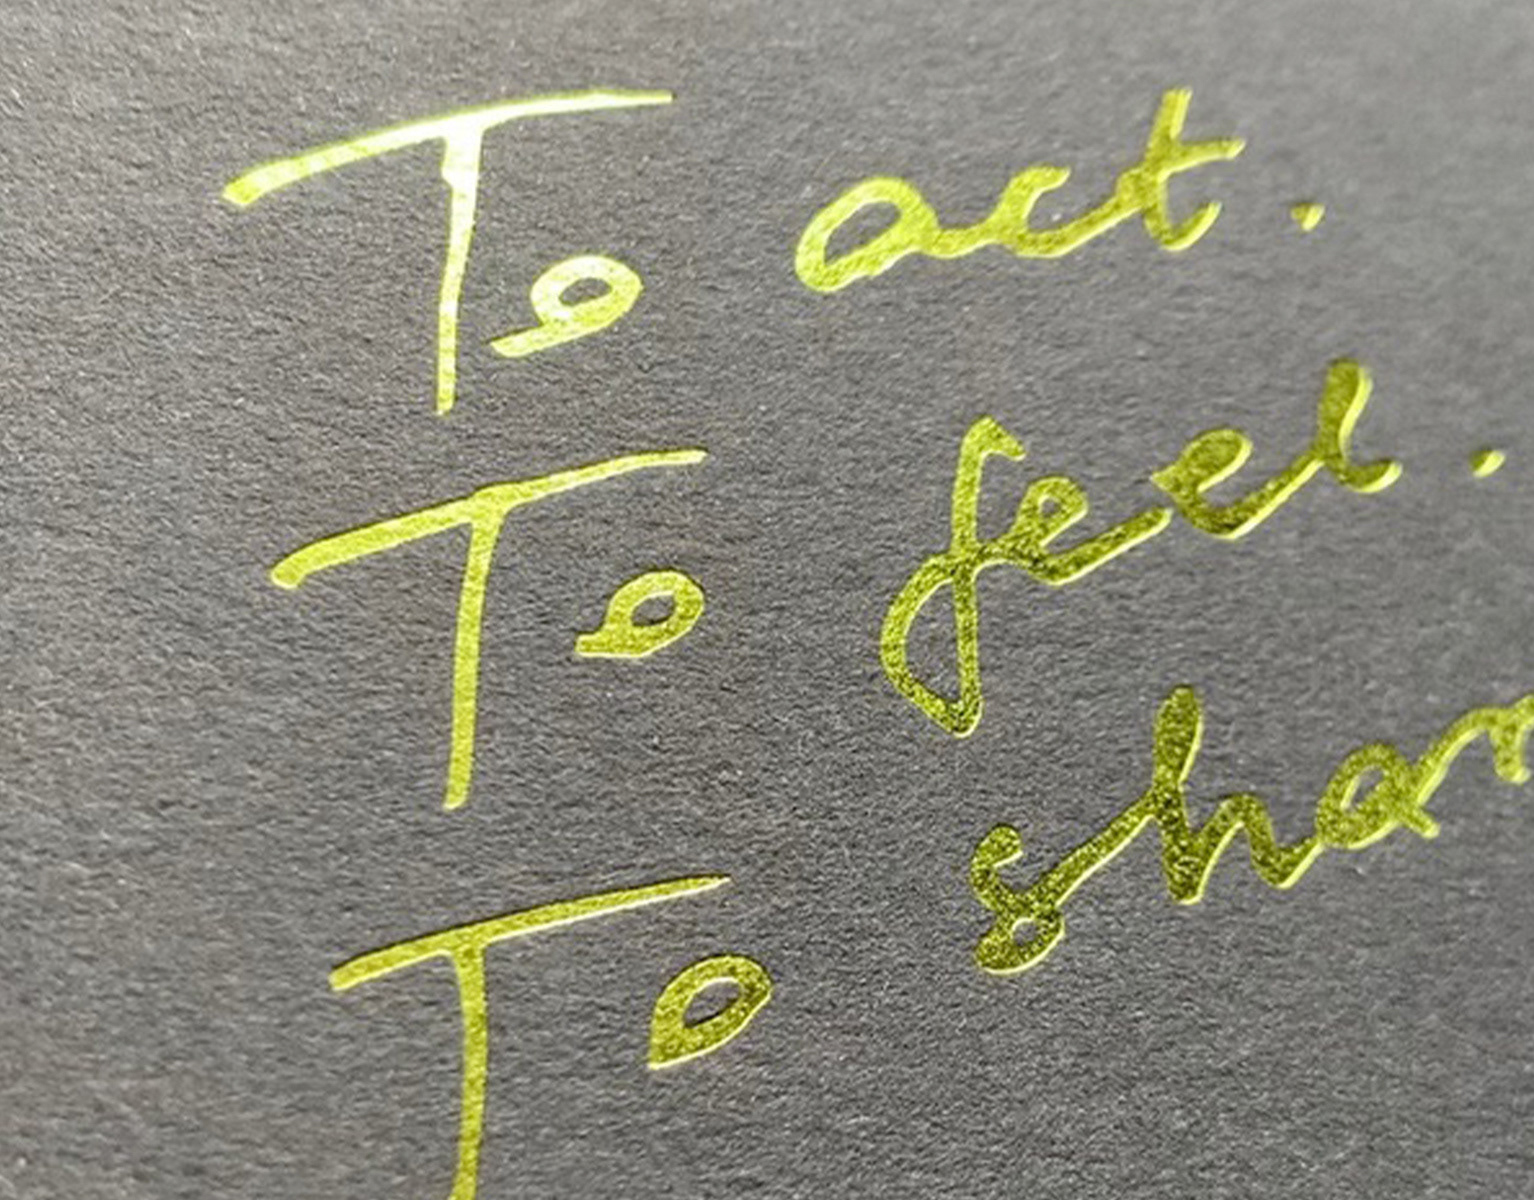 To act.
To feel.
To shar